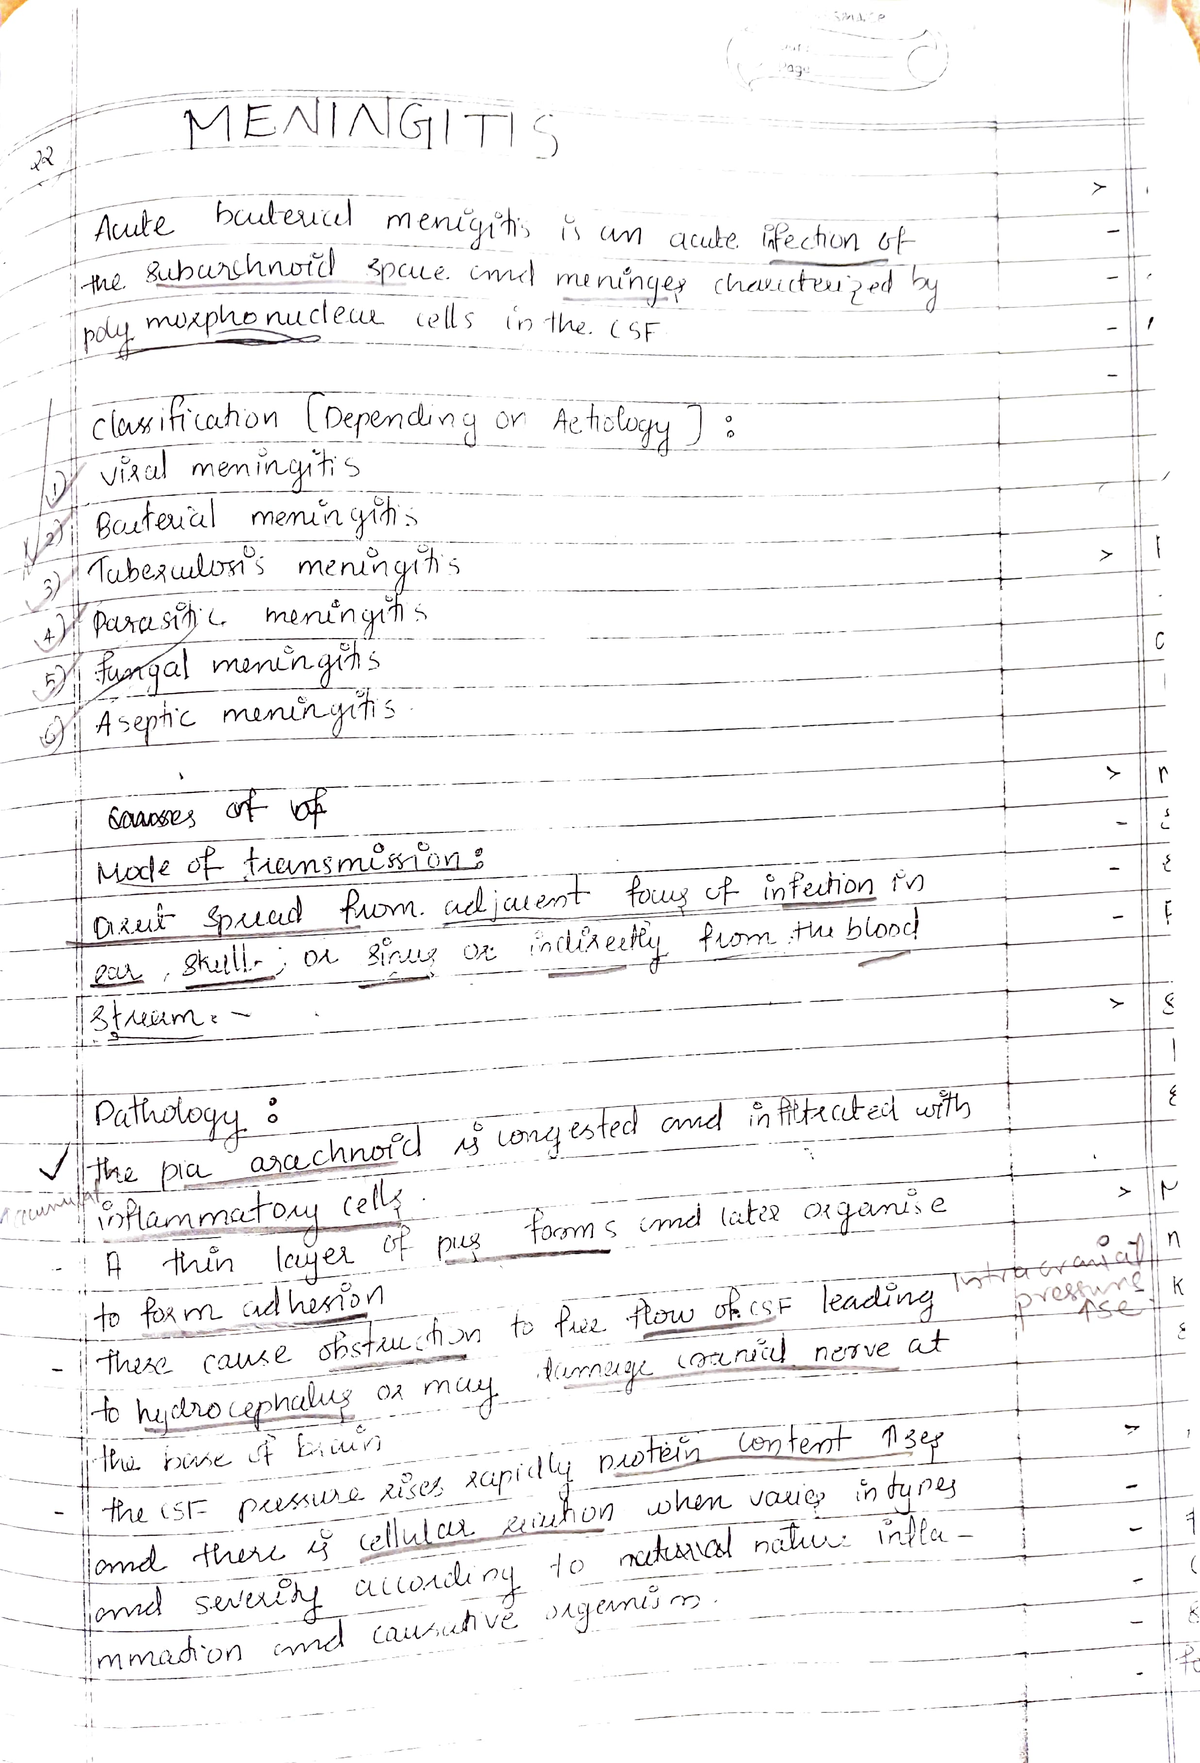 Page
MENINGITIS
22
Acute bacterial menigitis is an acute infection of
the subarchnoid space and meninges characterized by
polymorphonuclear cells in the CSF
Classification [Depending on Aetiology] :
1) viral meningitis
2) Bacterial meningitis
3) Tuberculosis meningitis
4) Parasitic meningitis
5) fungal meningitis
6) Aseptic meningitis.
Causes of of
Mode of transmission :
Direct spread from adjacent focus of infection in
ear, skull, or sinus or indirectly from the blood
stream. -
Pathology :
the pia arachnoid is congested and infiltrated with
inflammatory cells.
- A thin layer of pus forms and later organise
to form adhesion
Intracranial
pressure
↑se
- these cause obstruction to free flow of CSF leading
to hydrocephalus or may damage cranial nerve at
the base of brain
- the CSF pressure rises rapidly protein content ↑ses
and there is cellular reaction when varies in types
and severity according to natural nature infla-
mmation and causative organism.